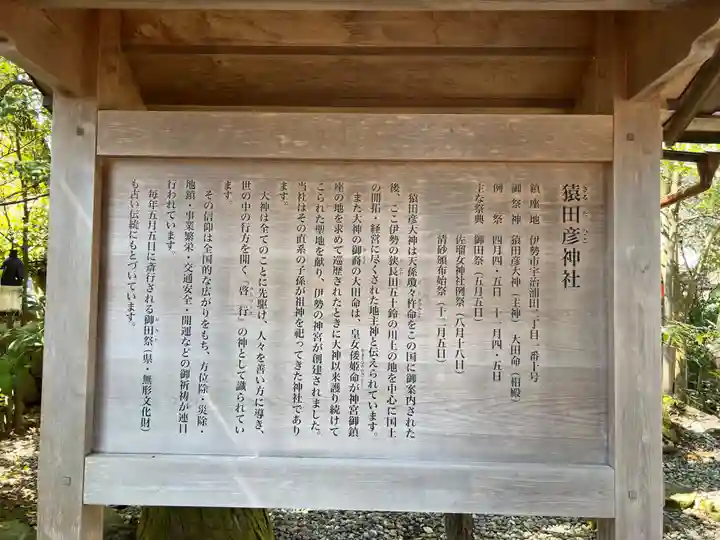 猿田彦神社
鎮座地　伊勢市宇治浦田二丁目一番十号
御祭神　猿田彦大神（主神）　大田命（相殿）
例　祭　四月四・五日　十一月四・五日
主な祭典　御田祭（五月五日）
佐瑠女神社例祭（八月十八日）
清砂頒布始祭（十二月五日）
猿田彦大神は天孫瓊々杵命をこの国に御案内された
後、ここ伊勢の狭長田五十鈴の川上の地を中心に国土
の開拓・経営に尽くされた地主神と伝えられています。
また大神の御裔の大田命は、皇女倭姫命が神宮御鎮
座の地を求めて巡歴されたときに大神以来護り続けて
こられた聖地を献り、伊勢の神宮が創建されました。
当社はその直系の子孫が祖神を祀ってきた神社であり
ます。
大神は全てのことに先駆け、人々を善い方に導き、
世の中の行方を開く「啓　行」の神として識られてい
ます。
その信仰は全国的な広がりをもち、方位除・災除・
地鎮・事業繁栄・交通安全・開運などの御祈祷が連日
行われています。
毎年五月五日に斎行される御田祭（県・無形文化財）
も古い伝統にもとづいています。